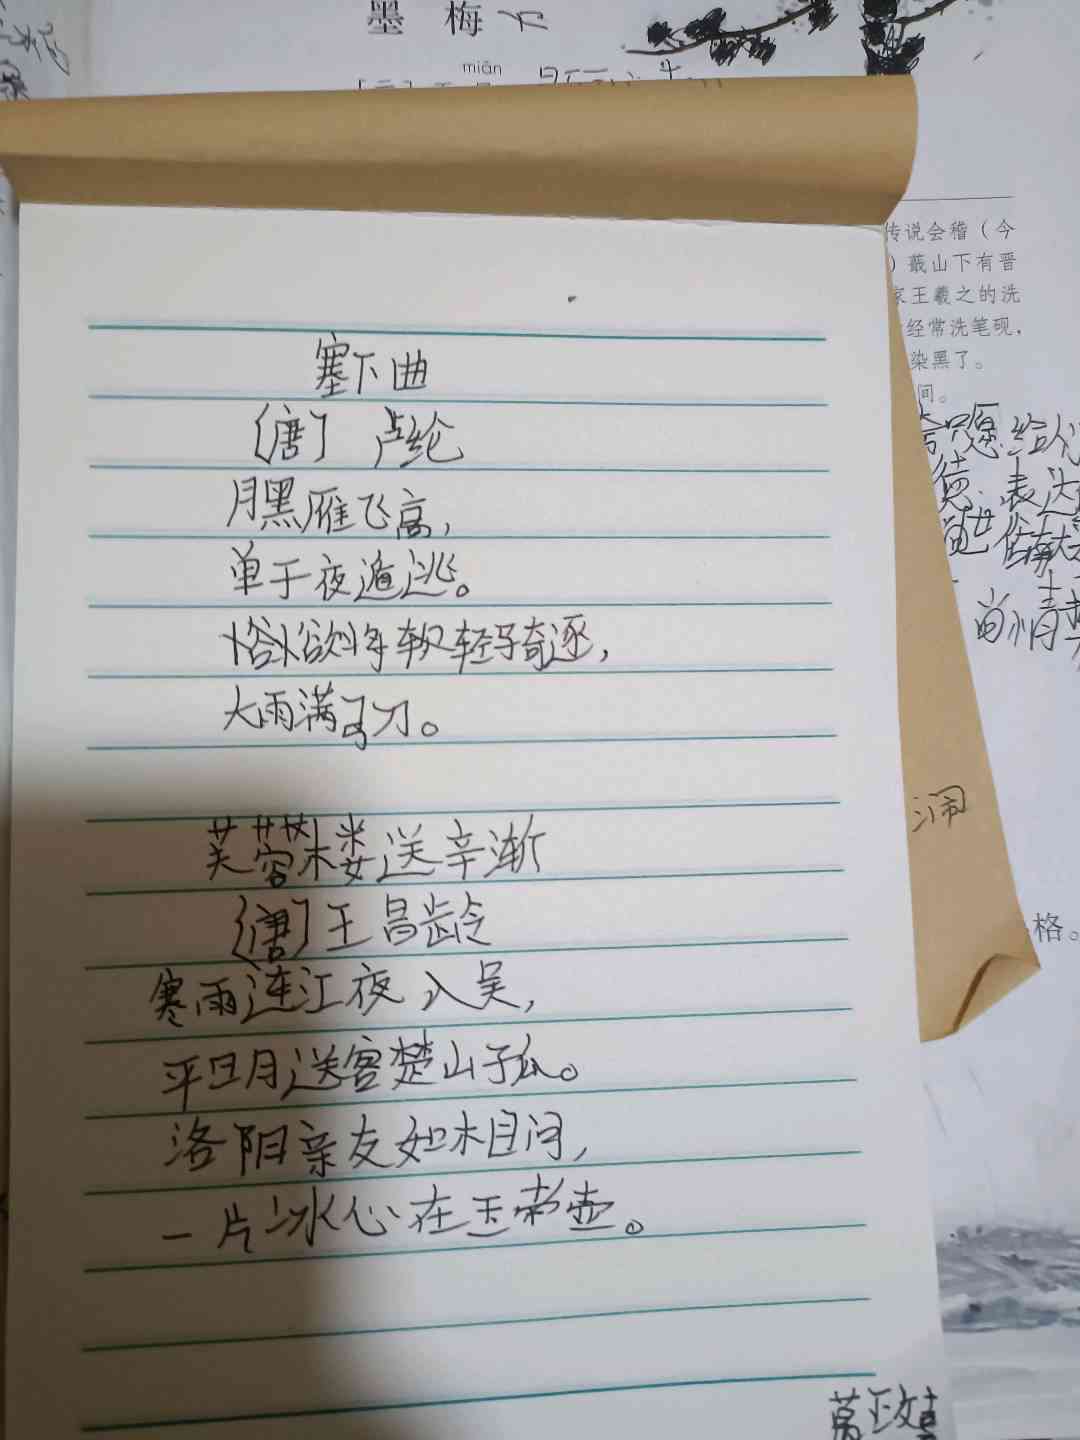 墨梅
mián
传说会稽（今
）蕺山下有晋
家王羲之的洗
经常洗笔砚，
染黑了。
间。
只愿给人
德.表达
的情
塞下曲
〔唐〕 卢纶
月黑雁飞高，
单于夜遁逃。
欲将软轻骑逐，
大雨满弓刀。
芙蓉楼送辛渐
〔唐〕王昌龄
寒雨连江夜入吴，
平旦月送客楚山孤。
洛阳亲友如相问，
一片冰心在玉壶。
格。